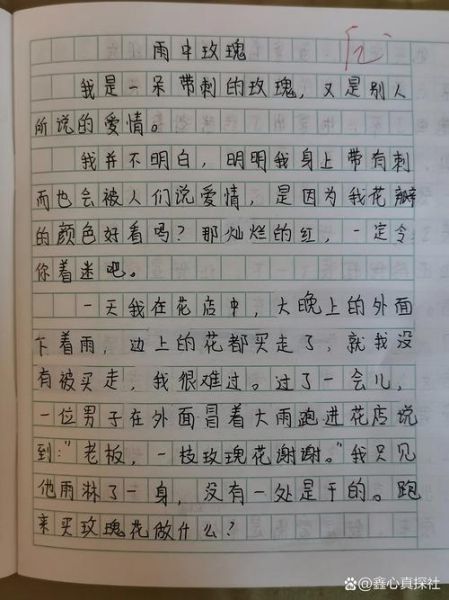 雨中玫瑰
我是一朵带刺的玫瑰，又是别人
所说的爱情。
我并不明白，明明我身上带有刺
而也会被人们说爱情，是因为我花瓣
的颜色好看吗？那灿烂的红，一定令
你着迷吧。
一天我在花店中，大晚上的外面
下着雨，边上的花都买走了，就我没
有被买走，我很难过。过了一会儿，
一位男子在外面冒着大雨跑进花店说
到：“老板，一枝玫瑰花谢谢。”我只见
他雨淋了一身，没有一处是干的。跑
来买玫瑰花做什么？
@鑫心真探社